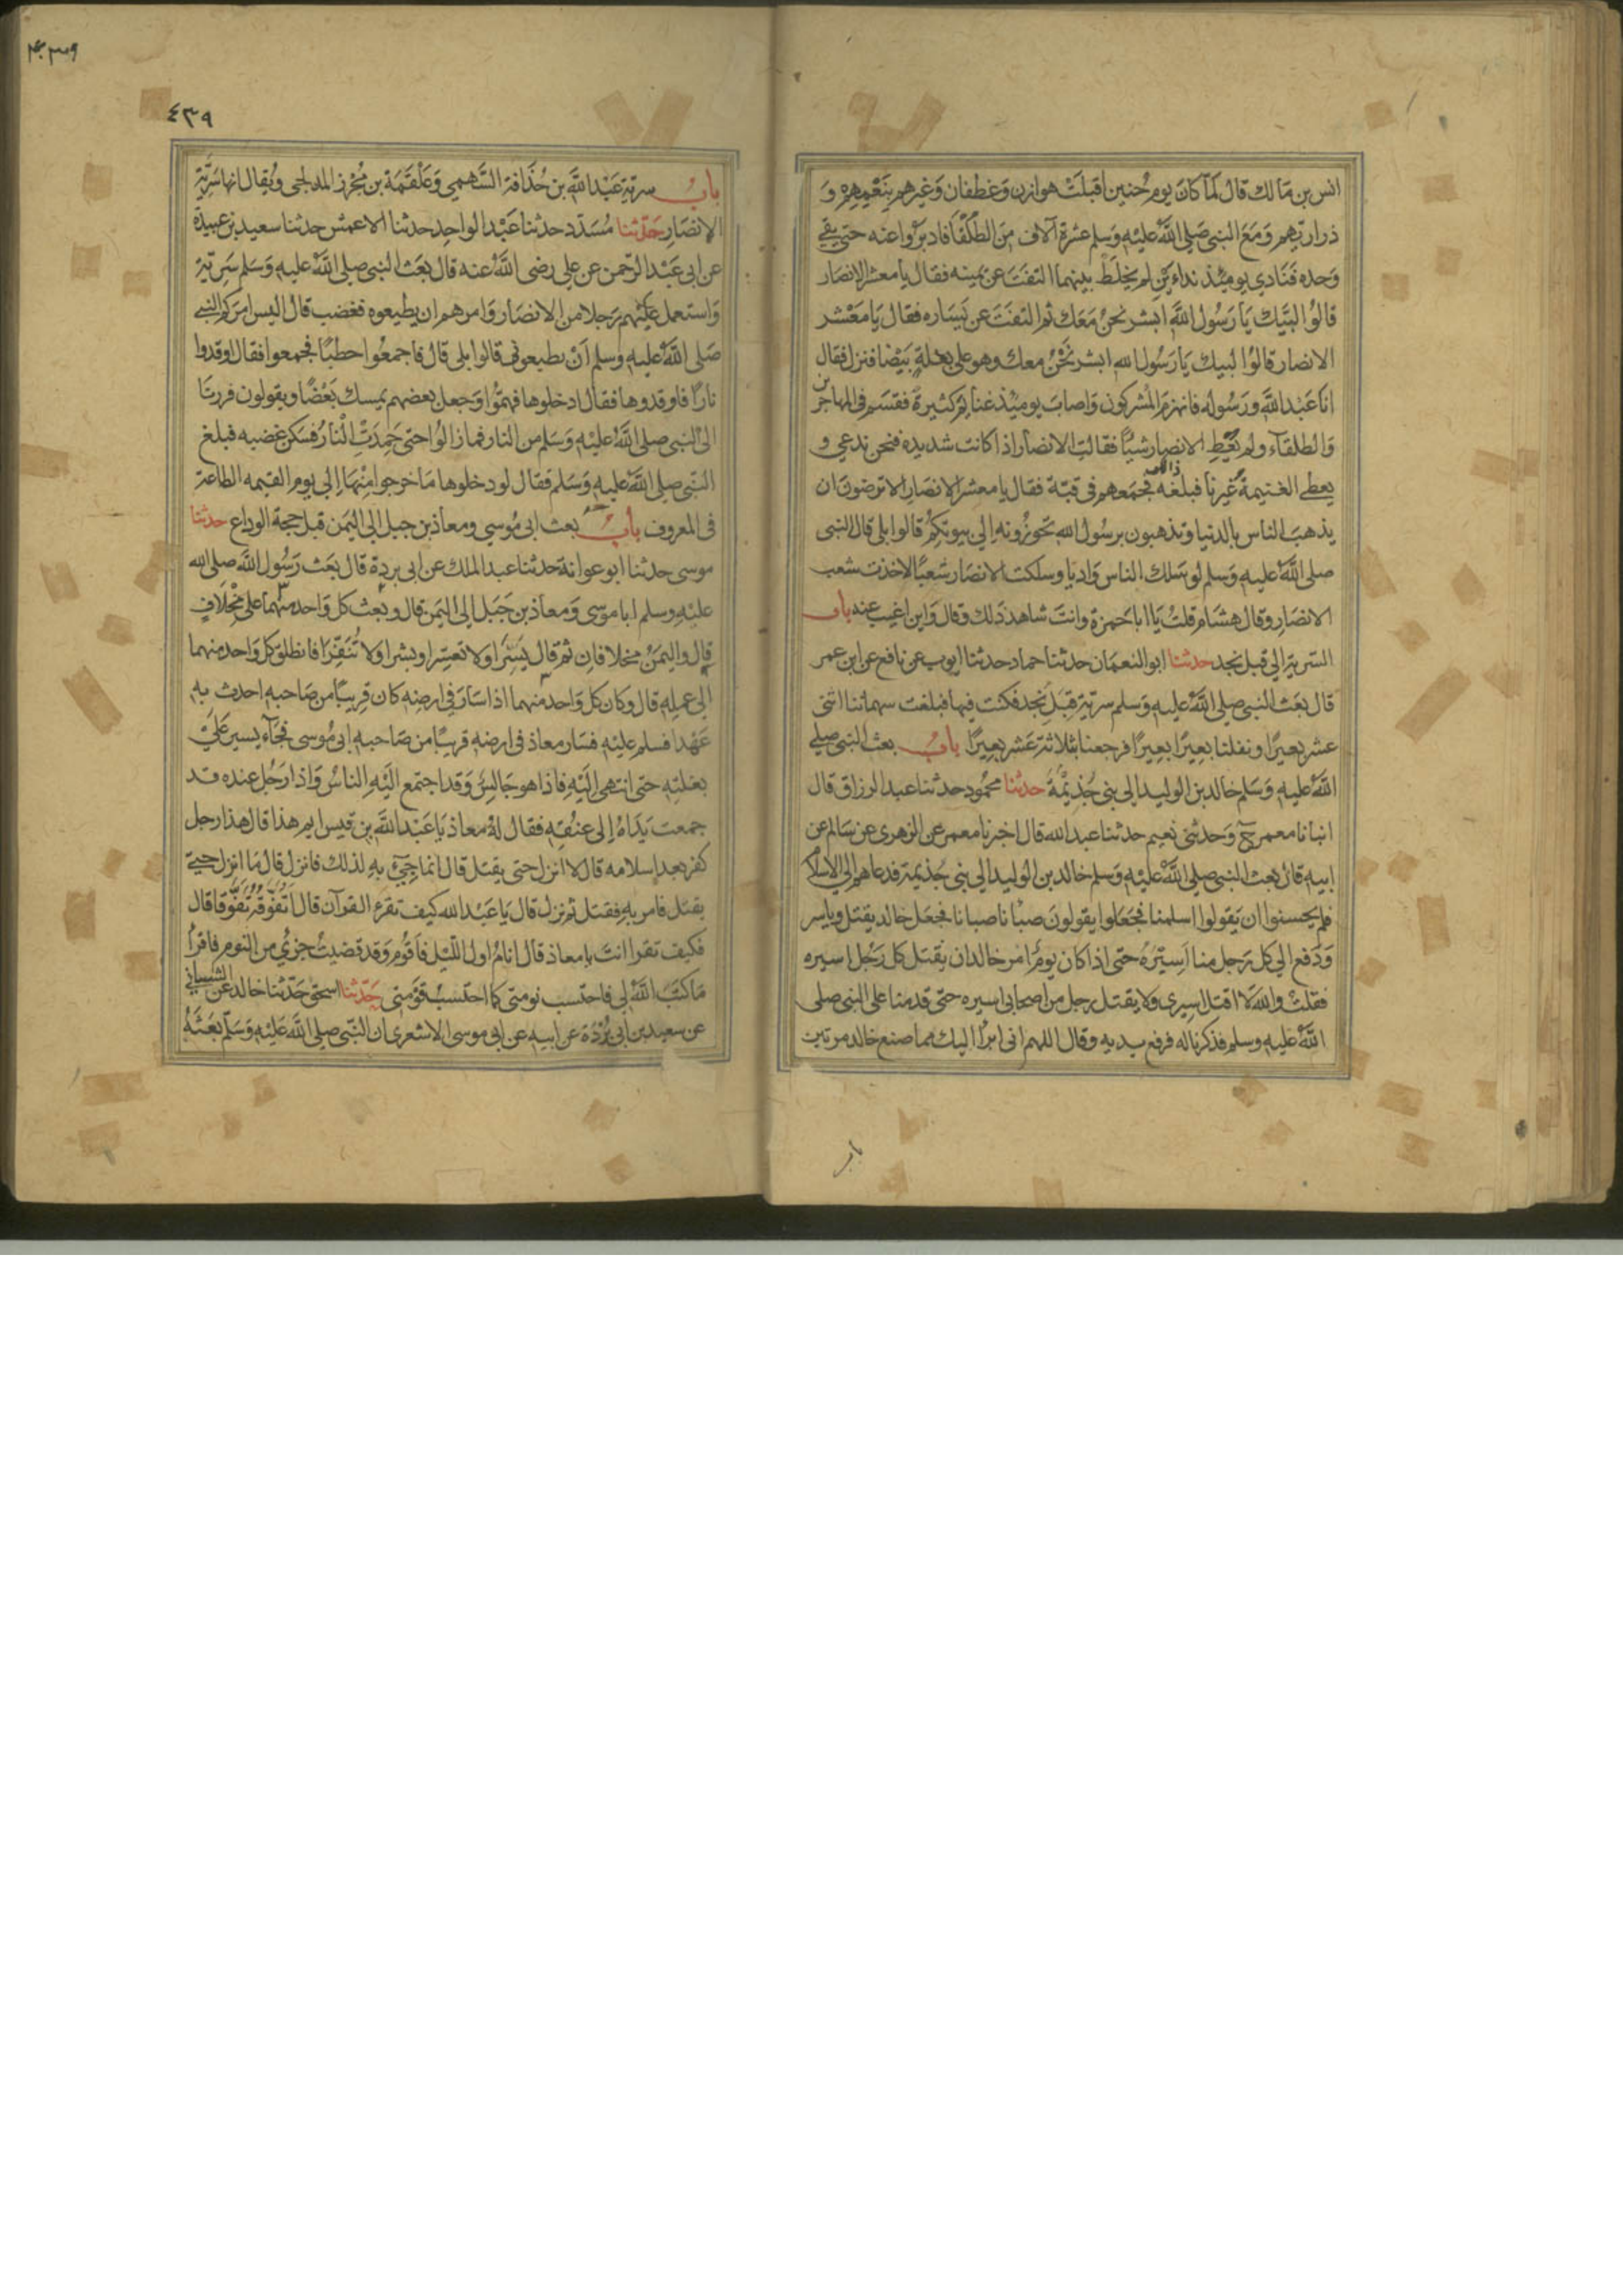 انس بن مالك قال لما كان يوم حنين اقبلت هوازن وغطفان وغيرهم بنعمهم و
ذراريهم ومع النبي صلى الله عليه وسلم عشرة آلاف من الطلقا فادبروا عنه حتى بقي
وحده فنادى يومئذ نداءين لم يخلط بينهما التفت عن يمينه فقال يا معشر الانصار
قالوا لبيك يا رسول الله ابشر نحن معك ثم التفت عن يساره فقال يا معشر
الانصار قالوا لبيك يا رسول الله ابشر نحن معك وهو على بغلة بيضا فنزل فقال
انا عبد الله ورسوله فانهزم المشركون واصاب يومئذ غنايم كثيرة فقسم في المهاجرين
والطلقاء ولم يعط الانصار شيئا فقالت الانصار اذا كانت شديدة فنحن ندعى و
يعطى الغنيمة غيرنا فبلغه ذلك فجمعهم في قبة فقال يا معشر الانصار الا ترضون ان
يذهب الناس بالدنيا وتذهبون برسول الله تحوزونه الى بيوتكم قالوا بلى قال النبي
صلى الله عليه وسلم لو سلك الناس واديا وسلكت الانصار شعبا لاخذت شعب
الانصار وقال هشام قلت يا ابا حمزة وانت شاهد ذلك وقال واين اغيب عنه باب
السرية الى قبل نجد حدثنا ابو النعمان حدثنا حماد حدثنا ايوب عن نافع عن ابن عمر
قال بعث النبي صلى الله عليه وسلم سرية قبل نجد فكنت فيها فبلغت سهماننا اثنى
عشر بعيرا ونفلنا بعيرا بعيرا فرجعنا بثلاثة عشر بعيرا باب بعث النبي صلى
الله عليه وسلم خالد بن الوليد الى بني جذيمة حدثنا محمود حدثنا عبد الرزاق قال
انبانا معمر ح وحدثني نعيم حدثنا عبد الله قال اخبرنا معمر عن الزهري عن سالم عن
ابيه قال بعث النبي صلى الله عليه وسلم خالد بن الوليد الى بني جذيمة فدعاهم الى الاسلام
فلم يحسنوا ان يقولوا اسلمنا فجعلوا يقولون صبانا صبانا فجعل خالد يقتل وياسر
ودفع الى كل رجل منا اسيره حتى اذا كان يوم امر خالد ان يقتل كل رجل اسيره
فقلت والله لا اقتل اسيري ولا يقتل رجل من اصحابي اسيره حتى قدمنا على النبي صلى
الله عليه وسلم فذكرناه له فرفع يديه وقال اللهم اني ابرا اليك مما صنع خالد مرتين
باب
٤٣٩
باب سرية عبد الله بن حذافة السهمي وعلقمة بن مجزز المدلجي ويقال انها سرية
الانصار حدثنا مسدد حدثنا عبد الواحد حدثنا الاعمش حدثنا سعيد بن عبيدة
عن ابي عبد الرحمن عن علي رضى الله عنه قال بعث النبي صلى الله عليه وسلم سرية
واستعمل عليهم رجلا من الانصار وامرهم ان يطيعوه فغضب قال اليس امركم النبي
صلى الله عليه وسلم ان تطيعوني قالوا بلى قال فاجمعوا حطبا فجمعوا فقال اوقدوا
نارا فاوقدوها فقال ادخلوها فهموا وجعل بعضهم يمسك بعضا ويقولون فررنا
الى النبي صلى الله عليه وسلم من النار فما زالوا حتى خمدت النار فسكن غضبه فبلغ
النبي صلى الله عليه وسلم فقال لو دخلوها ما خرجوا منها الى يوم القيمه الطاعة
في المعروف باب بعث ابي موسي ومعاذ بن جبل الى اليمن قبل حجة الوداع حدثنا
موسى حدثنا ابو عوانة حدثنا عبد الملك عن ابي بردة قال بعث رسول الله صلى الله
عليه وسلم ابا موسى ومعاذ بن جبل الى اليمن قال وبعث كل واحد منهما على مخلاف
قال واليمن مخلافان ثم قال يسرا ولا تعسرا وبشرا ولا تنفرا فانطلق كل واحد منهما
الى عمله قال وكان كل واحد منهما اذا سار في ارضه كان قريبا من صاحبه احدث به
عهدا فسلم عليه فسار معاذ في ارضه قريبا من صاحبه ابي موسى فجاء يسير على
بغلته حتى انتهى اليه فاذا هو جالس وقد اجتمع اليه الناس واذا رجل عنده قد
جمعت يداه الى عنقه فقال له معاذ يا عبد الله بن قيس ايم هذا قال هذا رجل
كفر بعد اسلامه قال لا انزل حتى يقتل قال انما جيء به لذلك فانزل قال ما انزل حتى
يقتل فامر به فقتل ثم نزل قال يا عبد الله كيف تقرء القرآن قال اتفوقه تفوقا قال
فكيف تقرا انت يا معاذ قال انام اول الليل فاقوم وقد قضيت جزئي من النوم فاقرا
ما كتب الله لي فاحتسب نومتي كما احتسب قومتي حدثنا اسحق حدثنا خالد عن الشيباني
عن سعيد بن ابي بردة عن ابيه عن ابي موسى الاشعري ان النبي صلى الله عليه وسلم بعثه